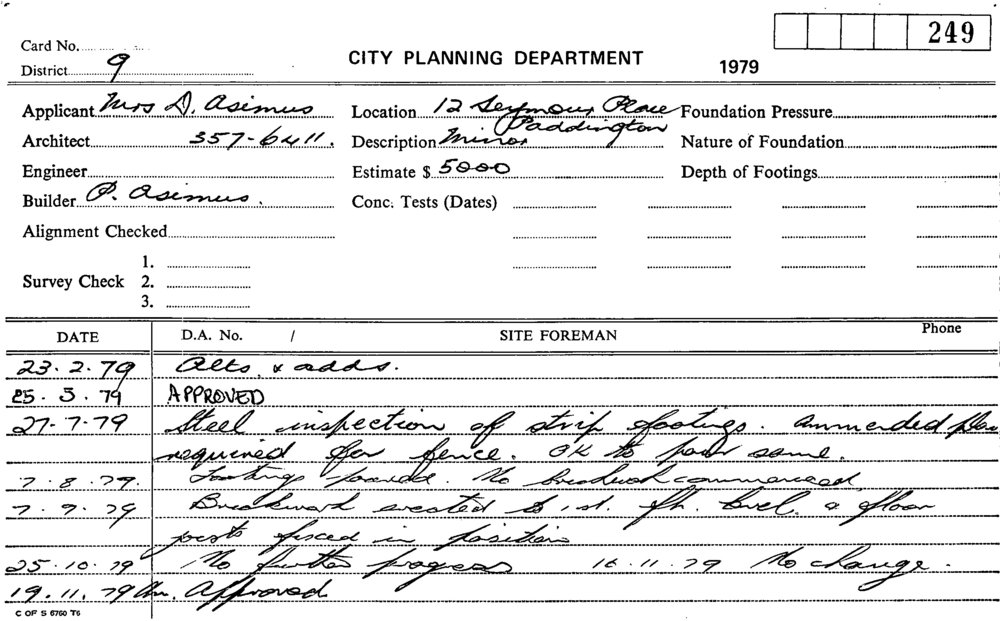 249
Card No.
District 9
CITY PLANNING DEPARTMENT
1979
Applicant Mrs D. Asimus
Location 12 Seymour Place
Paddington
Foundation Pressure
Architect 357-6411.
Description Minor
Nature of Foundation
Engineer
Estimate $ 5000
Depth of Footings
Builder P. Asimus.
Conc. Tests (Dates)
Alignment Checked
Survey Check
1.
2.
3.
DATE D.A. No. / SITE FOREMAN Phone
23.2.79 Alts. & adds.
25.5.79 APPROVED
27-7-79 Steel inspection of strip footings. Ammended plan
required for fence. OK to pour same.
7.8.79. Footings poured. No brickwork commenced
7.9.79 Brickwork erected to 1st. flr. level. & floor
joists fixed in position
25.10.79 No further progress 16.11.79 No change.
19.11.79 Approved
C OF S 6760 T6